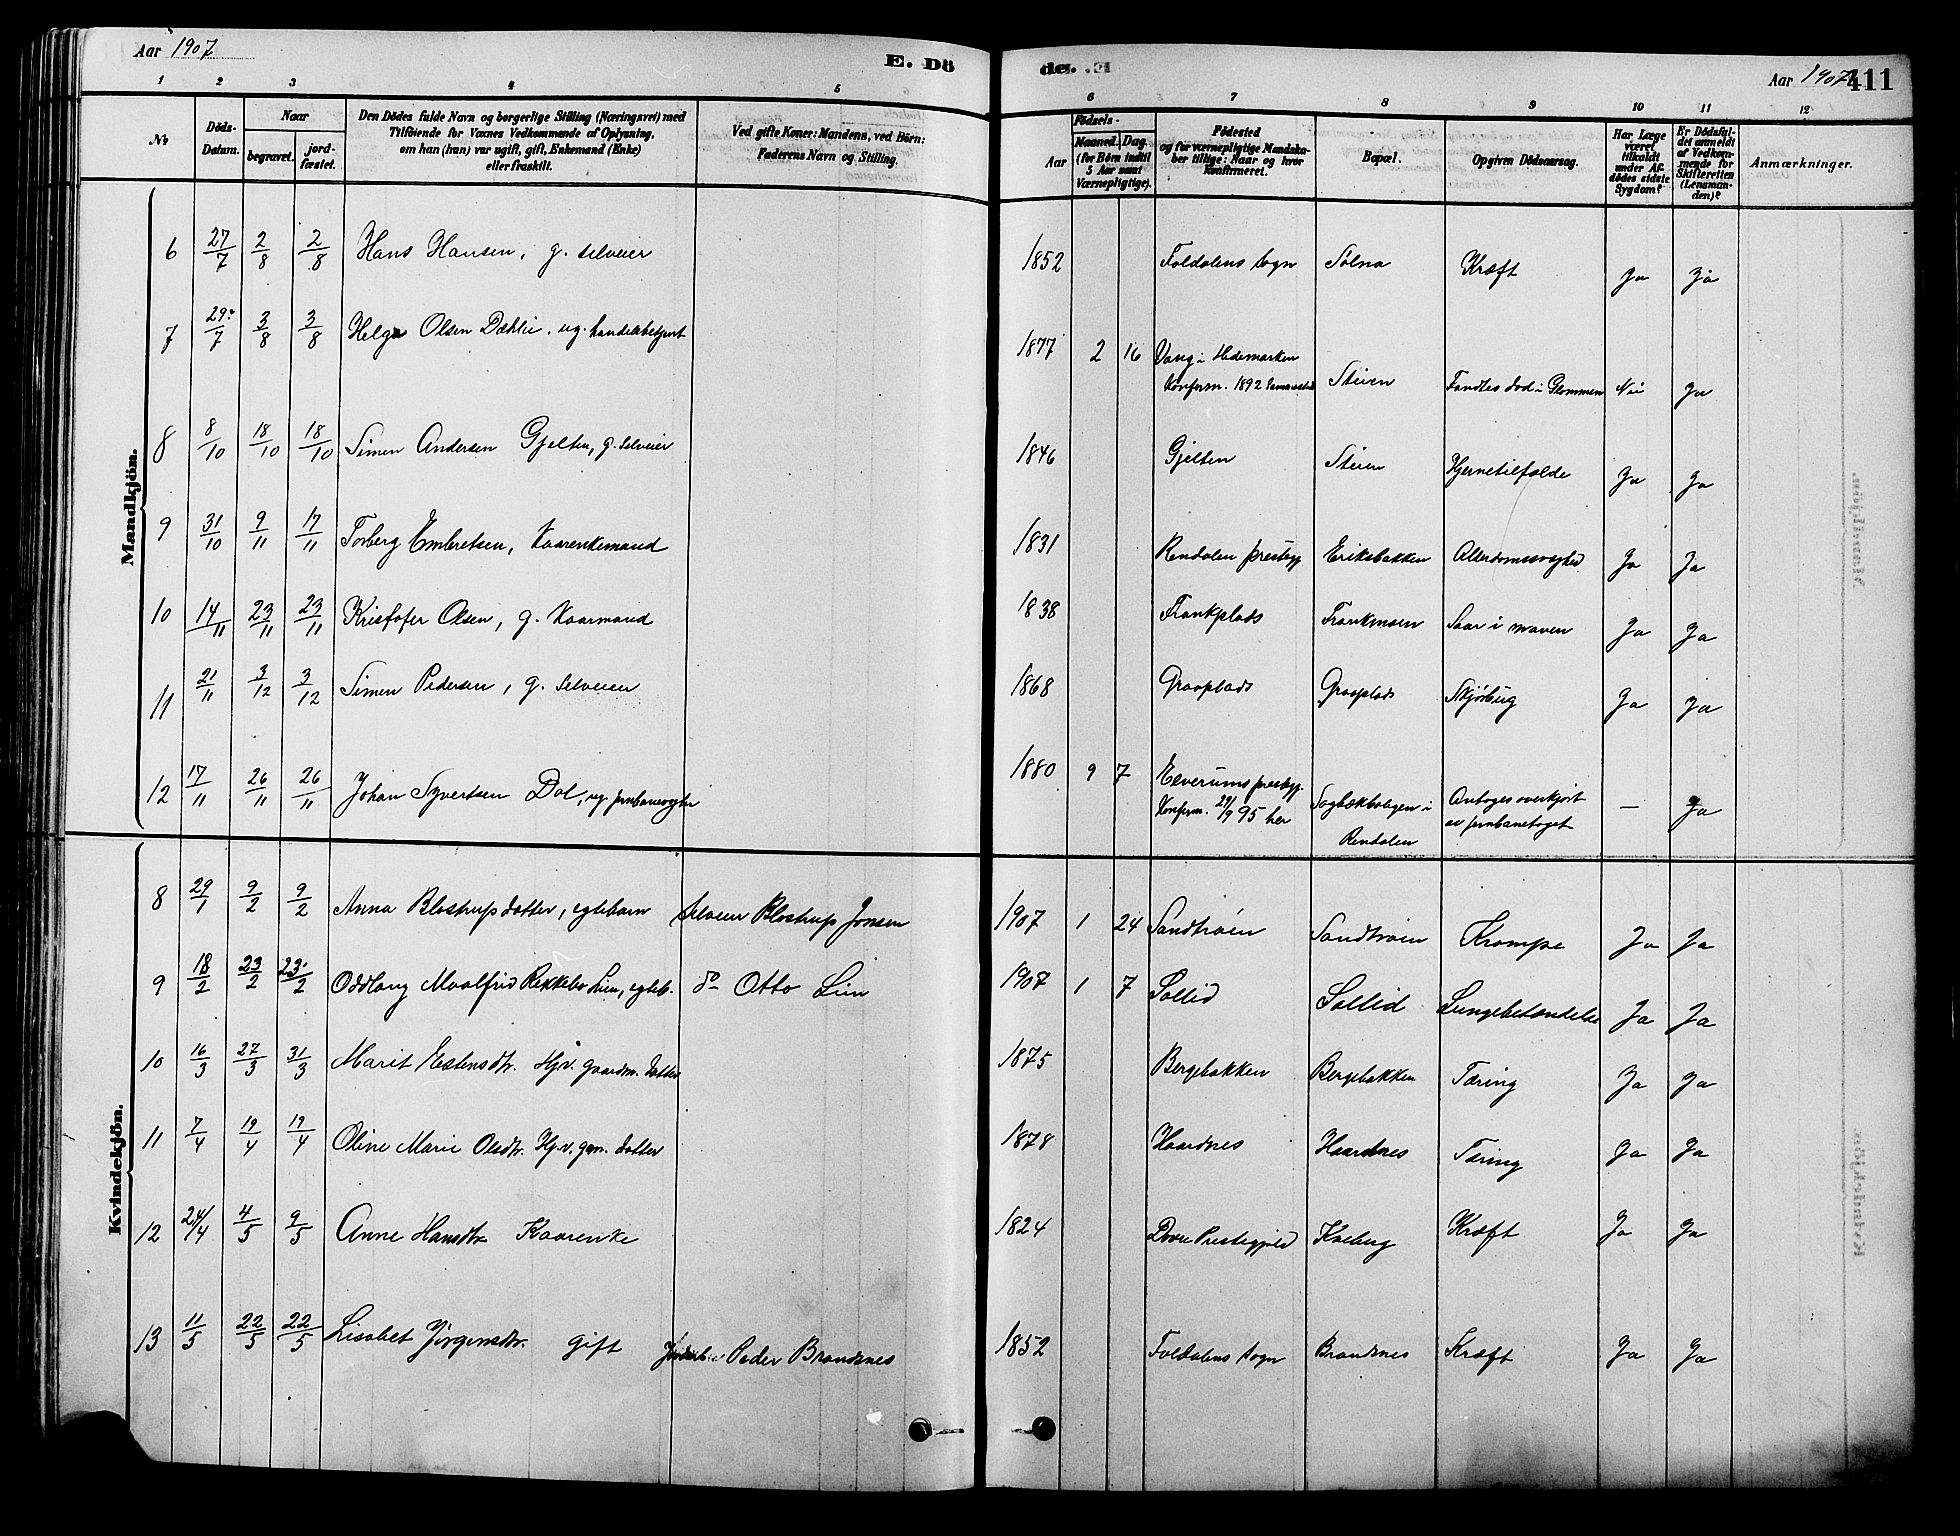 Aar 1907
E. Dö
de.
Aar 1907
411
1 2 3 4 5 6 7 8 9 10 11 12
No
Döds-Datum.
Naar
begravet.
jord-fæstet.
Den Dödes fulde Navn og borgerlige Stilling (Næringsvei) med
Tilföiende for Voxnes Vedkommende af Oplysning,
om han (hun) var ugift, gift, Enkemand (Enke)
eller fraskilt.
Ved gifte Koner: Mandens, ved Börn:
Faderens Navn og Stilling.
Födsels-
Aar
Maaned. Dag.
(for Börn indtil
5 Aar samt
Værnepligtige).
Födested
og for værnepligtige Mandska-
ber tillige: Naar og hvor
konfirmeret.
Bopæl.
Opgiven Dödsaarsag.
Har Læge
været
tilkaldt
under Af-
dödes sidste
Sygdom?
Er Dödsfal-
det anmeldt
af Vedkom-
mende for
Skifteretten
(Lensman-
den)?
Anmærkninger.
Mandkjön.
6 27/7 2/8 2/8 Hans Hansen, g. selveier 1852 Foldalens sogn Sølna Kræft Ja Ja
7 29/7 3/8 3/8 Helge Olsen Dæhlie. ug. handelsbetjent 1877 2 16 Vang i Hedemarken
Konferm. 1892 Steien Fandtes død i Glommen Nei Ja
8 8/10 18/10 18/10 Simen Andersen Gjelten, g. selveier 1846 Gjelten Steien Hjernetilfælde Ja Ja
9 31/10 9/11 17/11 Torberg Embretsen, Kaarenkemand 1831 Rendalen prestegj Eriksbakken Alderdomssvaghed Ja Ja
10 14/11 23/11 23/11 Kristofer Olsen, g. Kaarmand 1838 Frankplads Frankmoen Saar i maven Ja Ja
11 21/11 3/12 3/12 Simen Pedersen, g. selveier 1868 Graaplads Graaplads Skjørbug Ja Ja
12 17/11 26/11 26/11 Johan Syvertsen Dal, ug. jernbanevogter 1880 9 7 Elverums prestegj.
Konferm. 29/9 95 her Sagbækvolden i
Rendalen Antages overkjørt
av jernbanetoget — Ja
Kvindekjön.
8 29/1 9/2 9/2 Anna Blostrupsdatter, egtebarn Selveier Blostrup Jonsen 1907 1 24 Sandtrøen Sandtrøen Krampe Ja Ja
9 18/2 23/2 23/2 Oddlaug Maalfrid Rekkebo Lien, egteb. do Otto Lien 1907 1 7 Sollid Sollid Lungebetændelse Ja Ja
10 16/3 27/3 31/3 Marit Estensdtr. Hjv. gaardm. datter 1875 Bergebakken Bergebakken Tæring Ja Ja
11 7/4 19/4 19/4 Oline Marie Olsdtr. Hjv. gm. datter 1878 Haardnes Haardnes Tæring Ja Ja
12 24/4 4/5 9/5 Anne Hansdtr Kaarenke 1824 Dovre Prestegjeld Kveberg Kræft Ja Ja
13 11/5 22/5 22/5 Lisabet Jörgensdtr. gift Peder Brandsnes 1852 Foldalens sogn Brandsnes Kræft Ja Ja